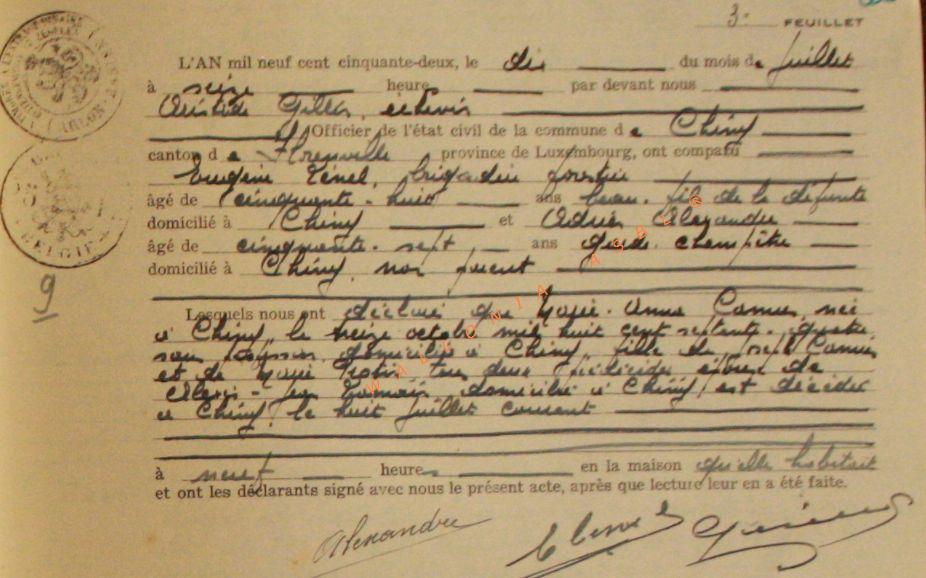 3e FEUILLET
L'AN mil neuf cent cinquante-deux, le dix du mois de juillet
à seize heure par devant nous
Gilles, échevin
Officier de l'état civil de la commune de Chiny
canton de Florenville province de Luxembourg, ont comparu
Eugène brigadier forestier
âgé de cinquante-huit ans beau-fils de la défunte
domicilié à Chiny et Alexandre
âgé de cinquante-sept ans garde champêtre
domicilié à Chiny, non parent
Lesquels nous ont déclaré que Marie-Anne Camus, née
à Chiny, le treize octobre mil huit cent septante-quatre
sans profession, domiciliée à Chiny, fille de Camus
et de Marie tous deux décédés, épouse de
domicilié à Chiny, est décédée
à Chiny, le huit juillet courant
à neuf heures en la maison qu'elle habitait
et ont les déclarants signé avec nous le présent acte, après que lecture leur en a été faite.
Alexandre
9
ARLON
BELGIE
WALLONIA ASBL